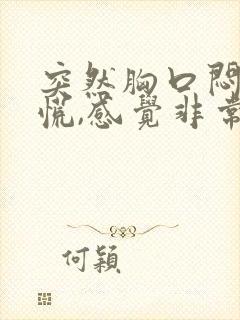 突然胸口悶
慌,感覺非常
何穎